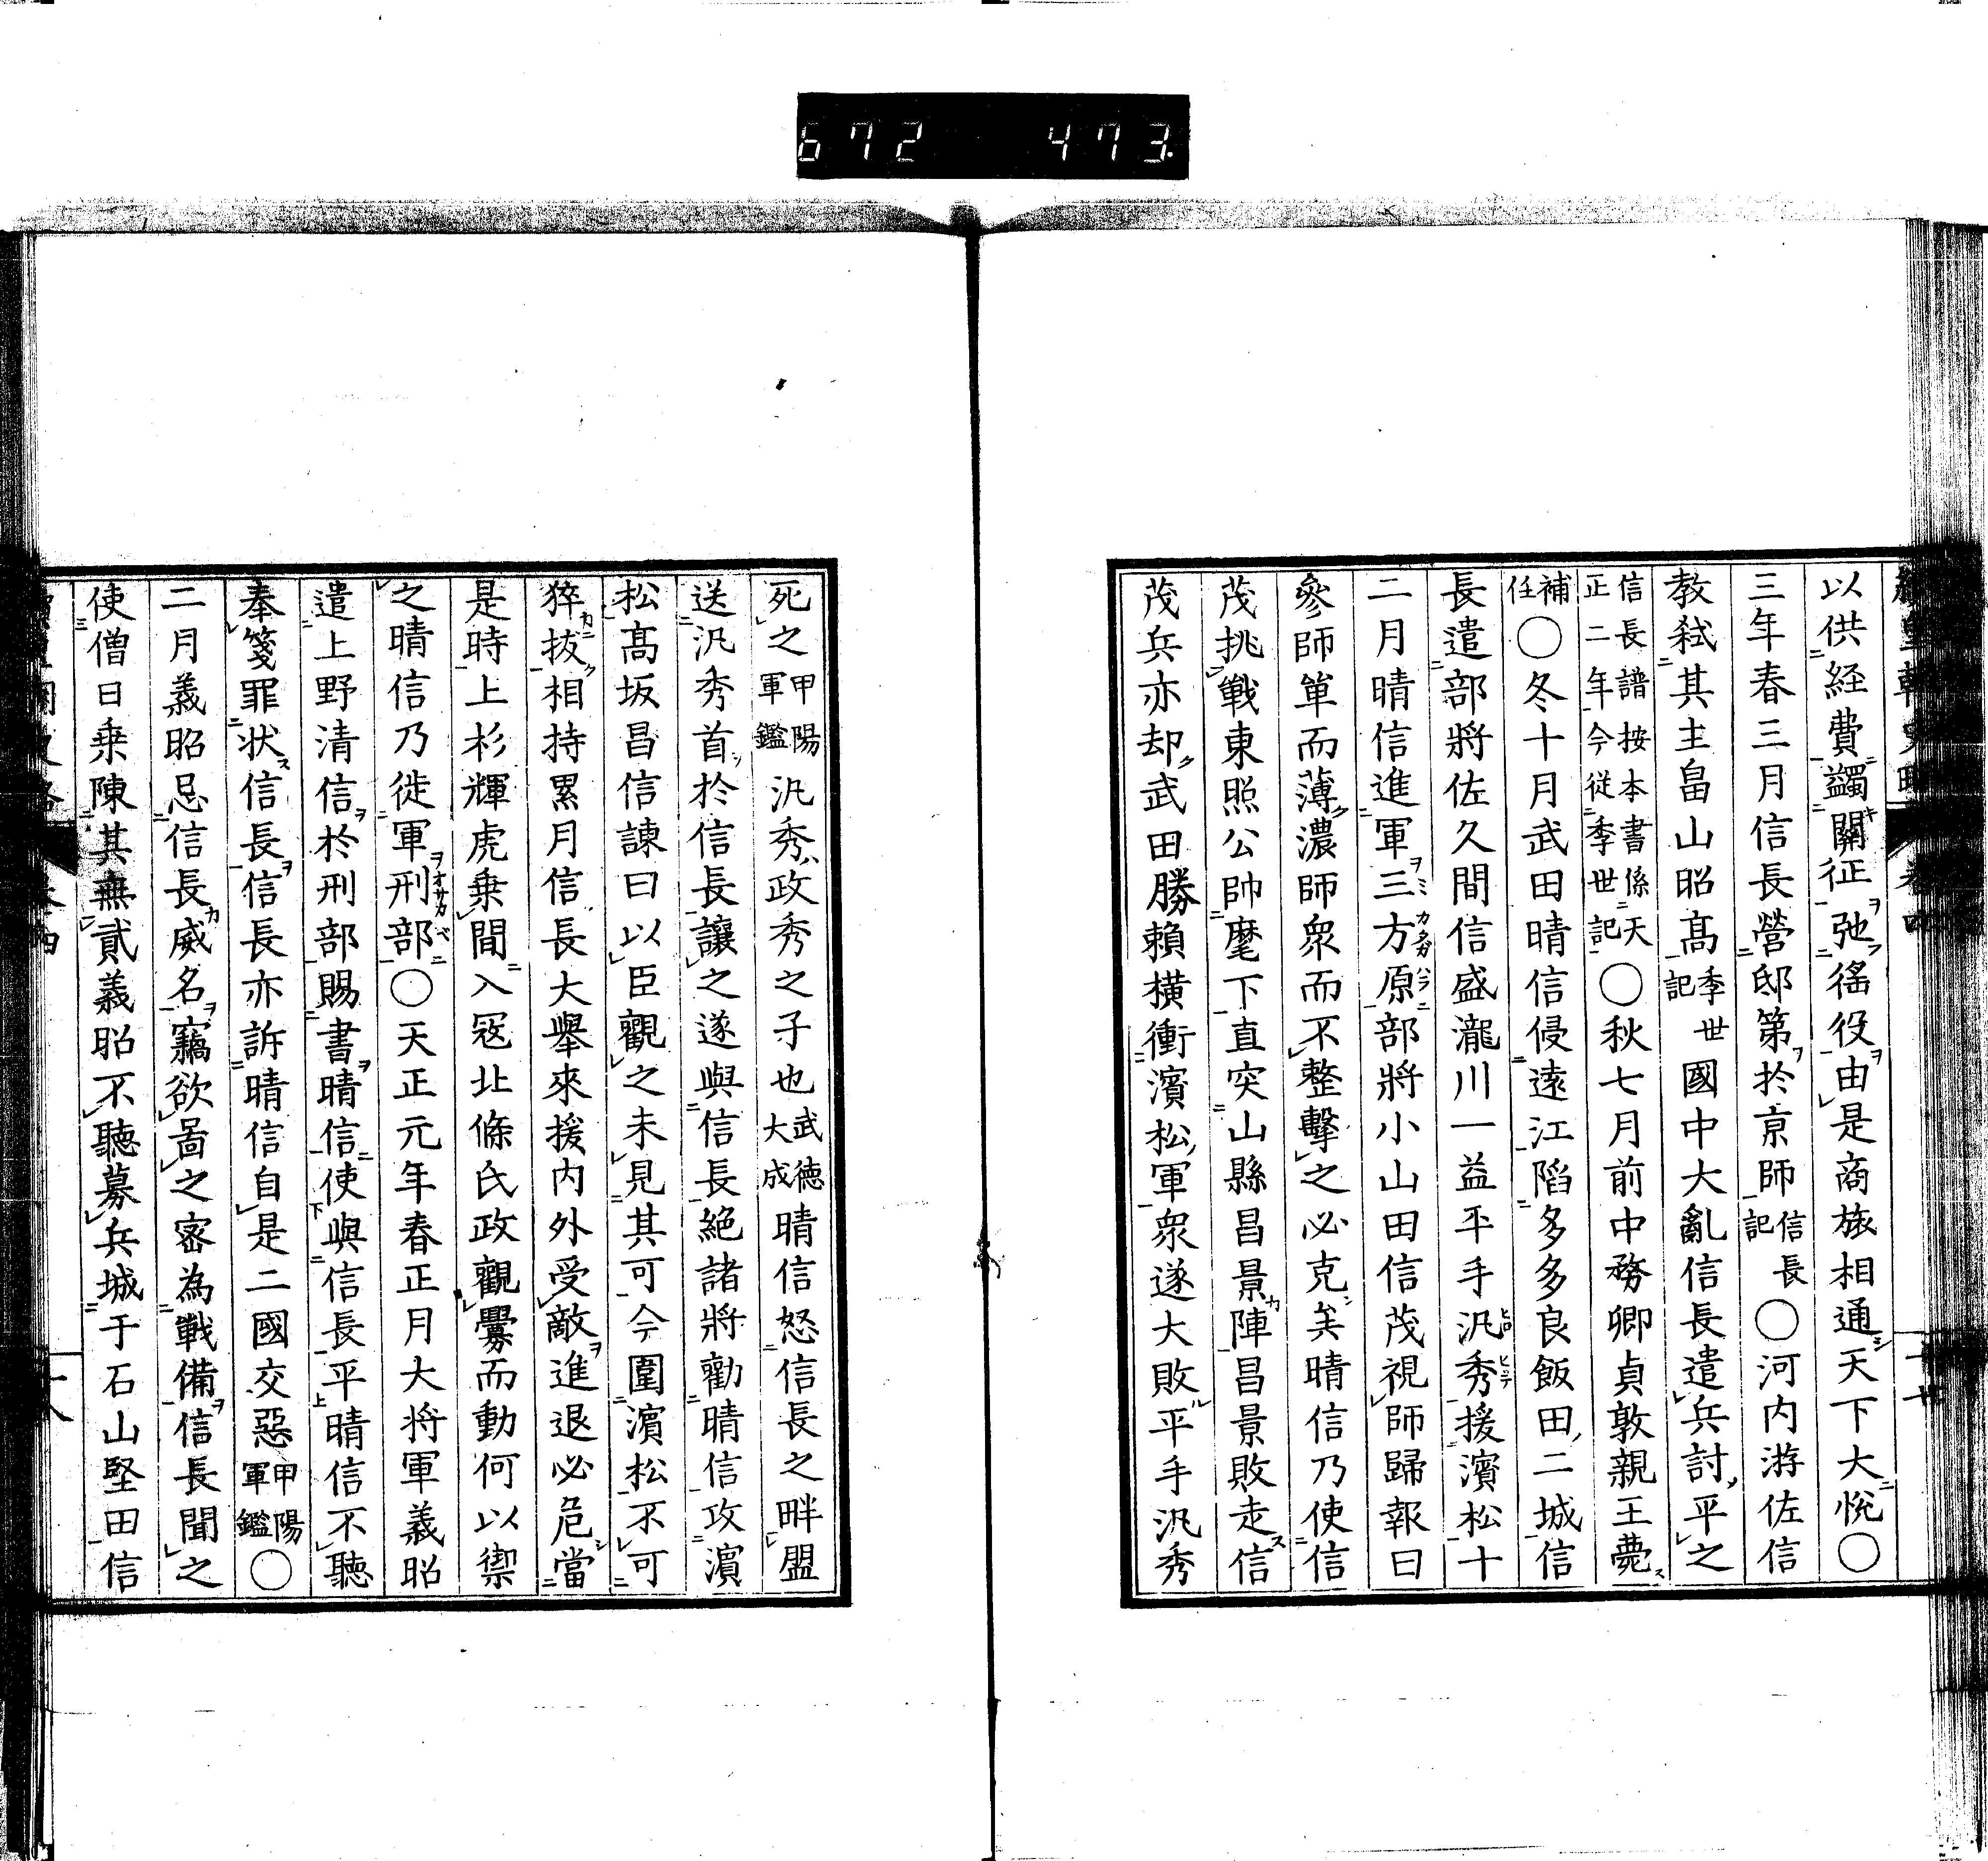 672 473
以供経費蠲關征弛徭役由是商旅相通天下大悅〇
三年春三月信長營邸第於京師信長記〇河内游佐信
教弑其主畠山昭髙季世記國中大亂信長遣兵討平之
信長譜按本書係天正二年今従季世記〇秋七月前中務卿貞敦親王薨
補任〇冬十月武田晴信侵遠江陷多多良飯田二城信
長遣部將佐久間信盛瀧川一益平手汎秀援濱松十
二月晴信進軍三方原部將小山田信茂視師歸報曰
參師単而薄濃師衆而不整擊之必克矣晴信乃使信
茂挑戰東照公帥麾下直突山縣昌景陣昌景敗走信
茂兵亦却武田勝賴橫衝濱松軍衆遂大敗平手汎秀
死之甲陽軍鑑汎秀政秀之子也武徳大成晴信怒信長之畔盟
送汎秀首於信長讓之遂與信長絕諸將勸晴信攻濱
松髙坂昌信諫曰以臣觀之未見其可今圍濱松不可
猝拔相持累月信長大舉來援内外受敵進退必危當
是時上杉輝虎乗間入冦北條氏政觀釁而動何以禦
之晴信乃徙軍刑部〇天正元年春正月大将軍義昭
遣上野清信於刑部賜書晴信使與信長平晴信不聽
奉箋罪状信長信長亦訴晴信自是二國交惡甲陽軍鑑〇
二月義昭忌信長威名竊欲啚之密為戰備信長聞之
使僧日乗陳其無貳義昭不聽募兵城于石山堅田信